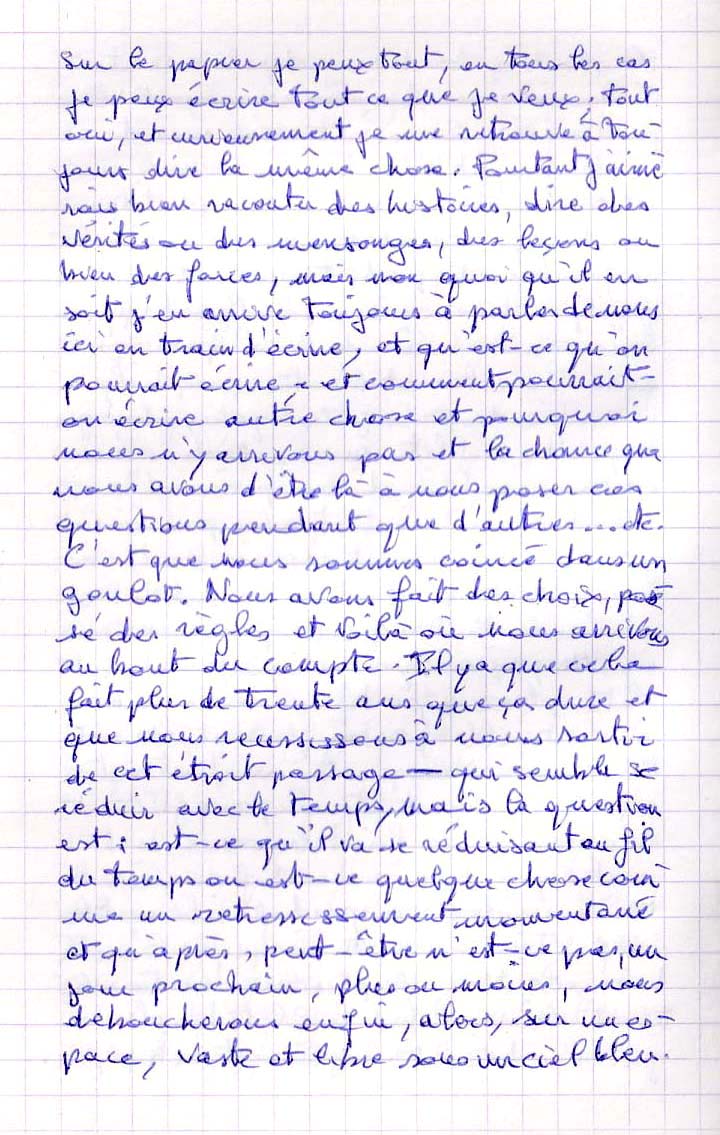 Sur le papier je peux tout, en tous les cas
je peux écrire tout ce que je veux, tout
oui, et curieusement je me retrouve à tou-
jours dire la même chose. Pourtant j'aime
rais bien raconter des histoires, dire des
vérités ou des mensonges, des leçons ou
bien des farces, mais non quoi qu'il en
soit j'en arrive toujours à parler de nous
ici en train d'écrire, et qu'est-ce qu'on
pourrait écrire, et comment pourrait-
on écrire autre chose et pourquoi
nous n'y arrivons pas et la chance que
nous avons d'être là à nous poser ces
questions pendant que d'autres... etc.
C'est que nous sommes coincé dans un
goulot. Nous avons fait des choix, po
sé des règles et voilà où nous arrivons
au bout du compte. Il y a que cela
fait plus de trente ans que ça dure et
que nous reussissons à nous sortir
de cet étroit passage — qui semble se
réduir avec le temps, mais la question
est : est-ce qu'il va se réduisant au fil
du temps ou est-ce quelque chose com
me un retressissement momentané
et qu'après, peut-être n'est-ce pas, un
jour prochain, plus ou moins, nous
deboucherons enfin, alors, sur un es-
pace, vaste et libre sous un ciel bleu.